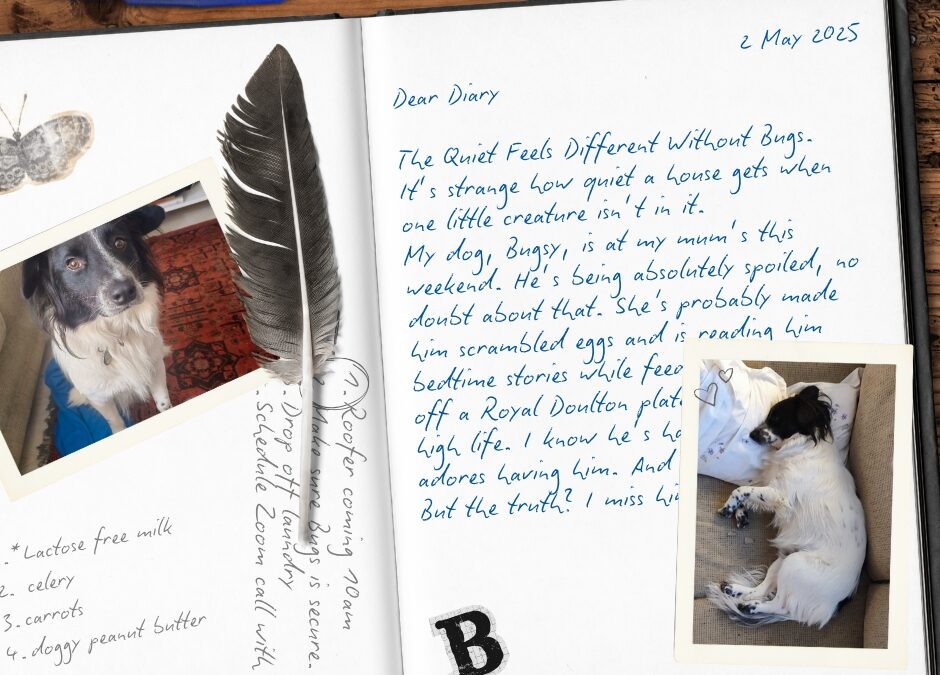 *Lactose free milk
2. celery
3. carrots
4. doggy peanut butter
1. Roofer coming 10am
Make sure Bugs is secure.
. Drop off laundry
. Schedule Zoom call with
2 May 2025
Dear Diary
The Quiet Feels Different Without Bugs.
It's strange how quiet a house gets when
one little creature isn't in it.
My dog, Bugsy, is at my mum's this
weekend. He's being absolutely spoiled, no
doubt about that. She's probably made
him scrambled eggs and is reading him
bedtime stories while
off a Royal Doulton
high life. I know he's
adores having him. And
But the truth? I miss
B